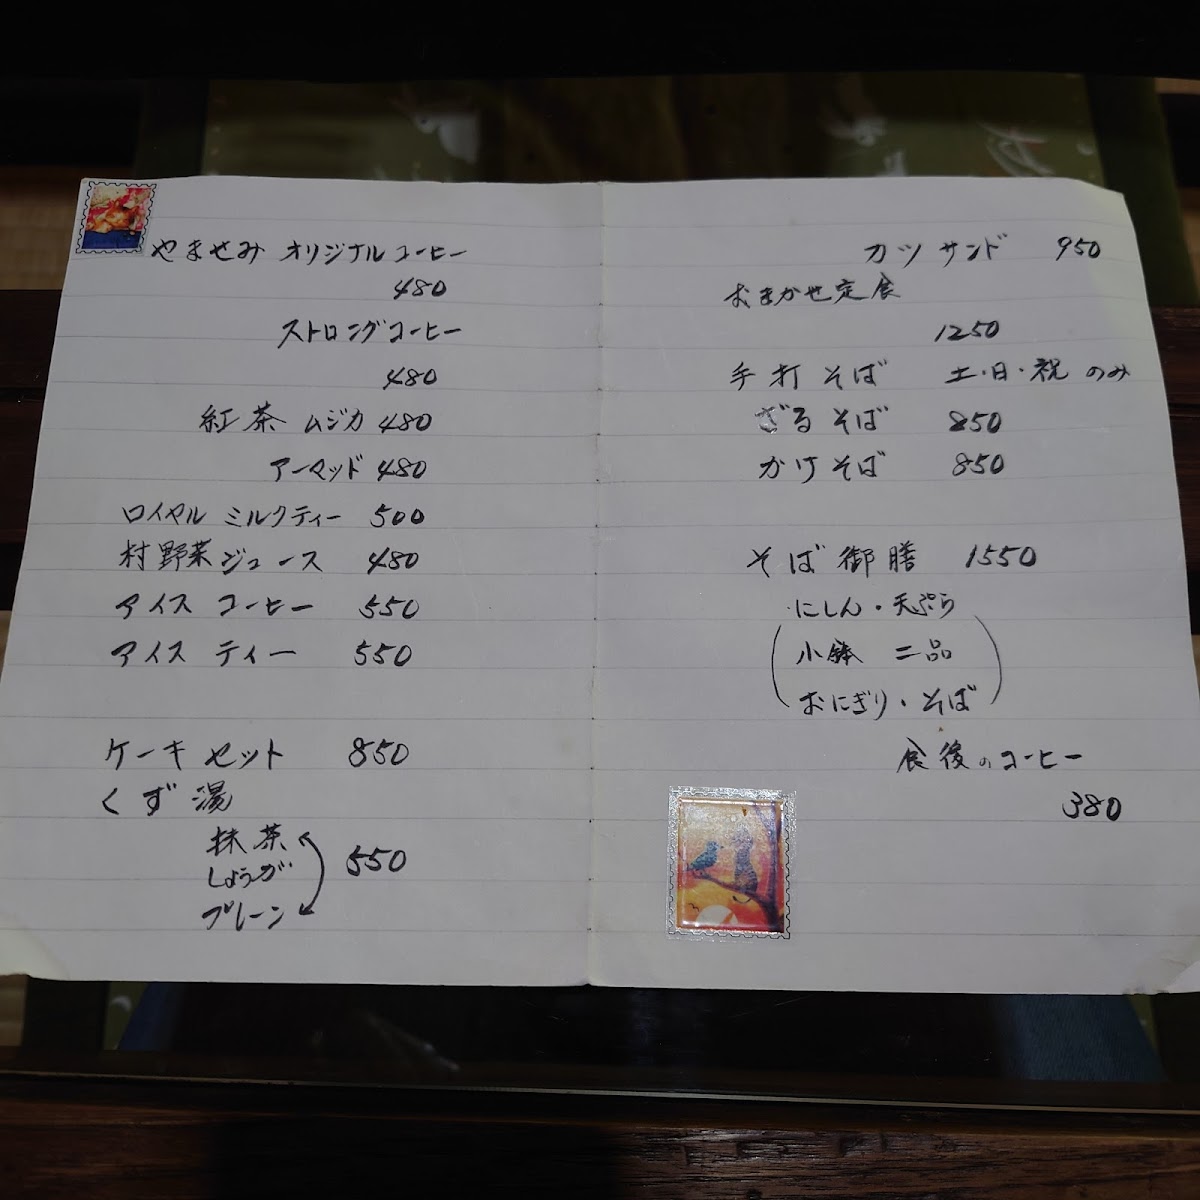 やませみ オリジナルコーヒー
480
ストロングコーヒー
480
紅茶 ムジカ 480
アーマッド 480
ロイヤル ミルクティー 500
村野菜ジュース 480
アイス コーヒー 550
アイス ティー 550
ケーキ セット 850
くず湯
抹茶
しょうが 550
プレーン
カツ サンド 950
おまかせ定食
1250
手打 そば 土・日・祝 のみ
ざる そば 850
かけ そば 850
そば 御膳 1550
にしん・天ぷら
小鉢 二品
おにぎり・そば
食後のコーヒー
380